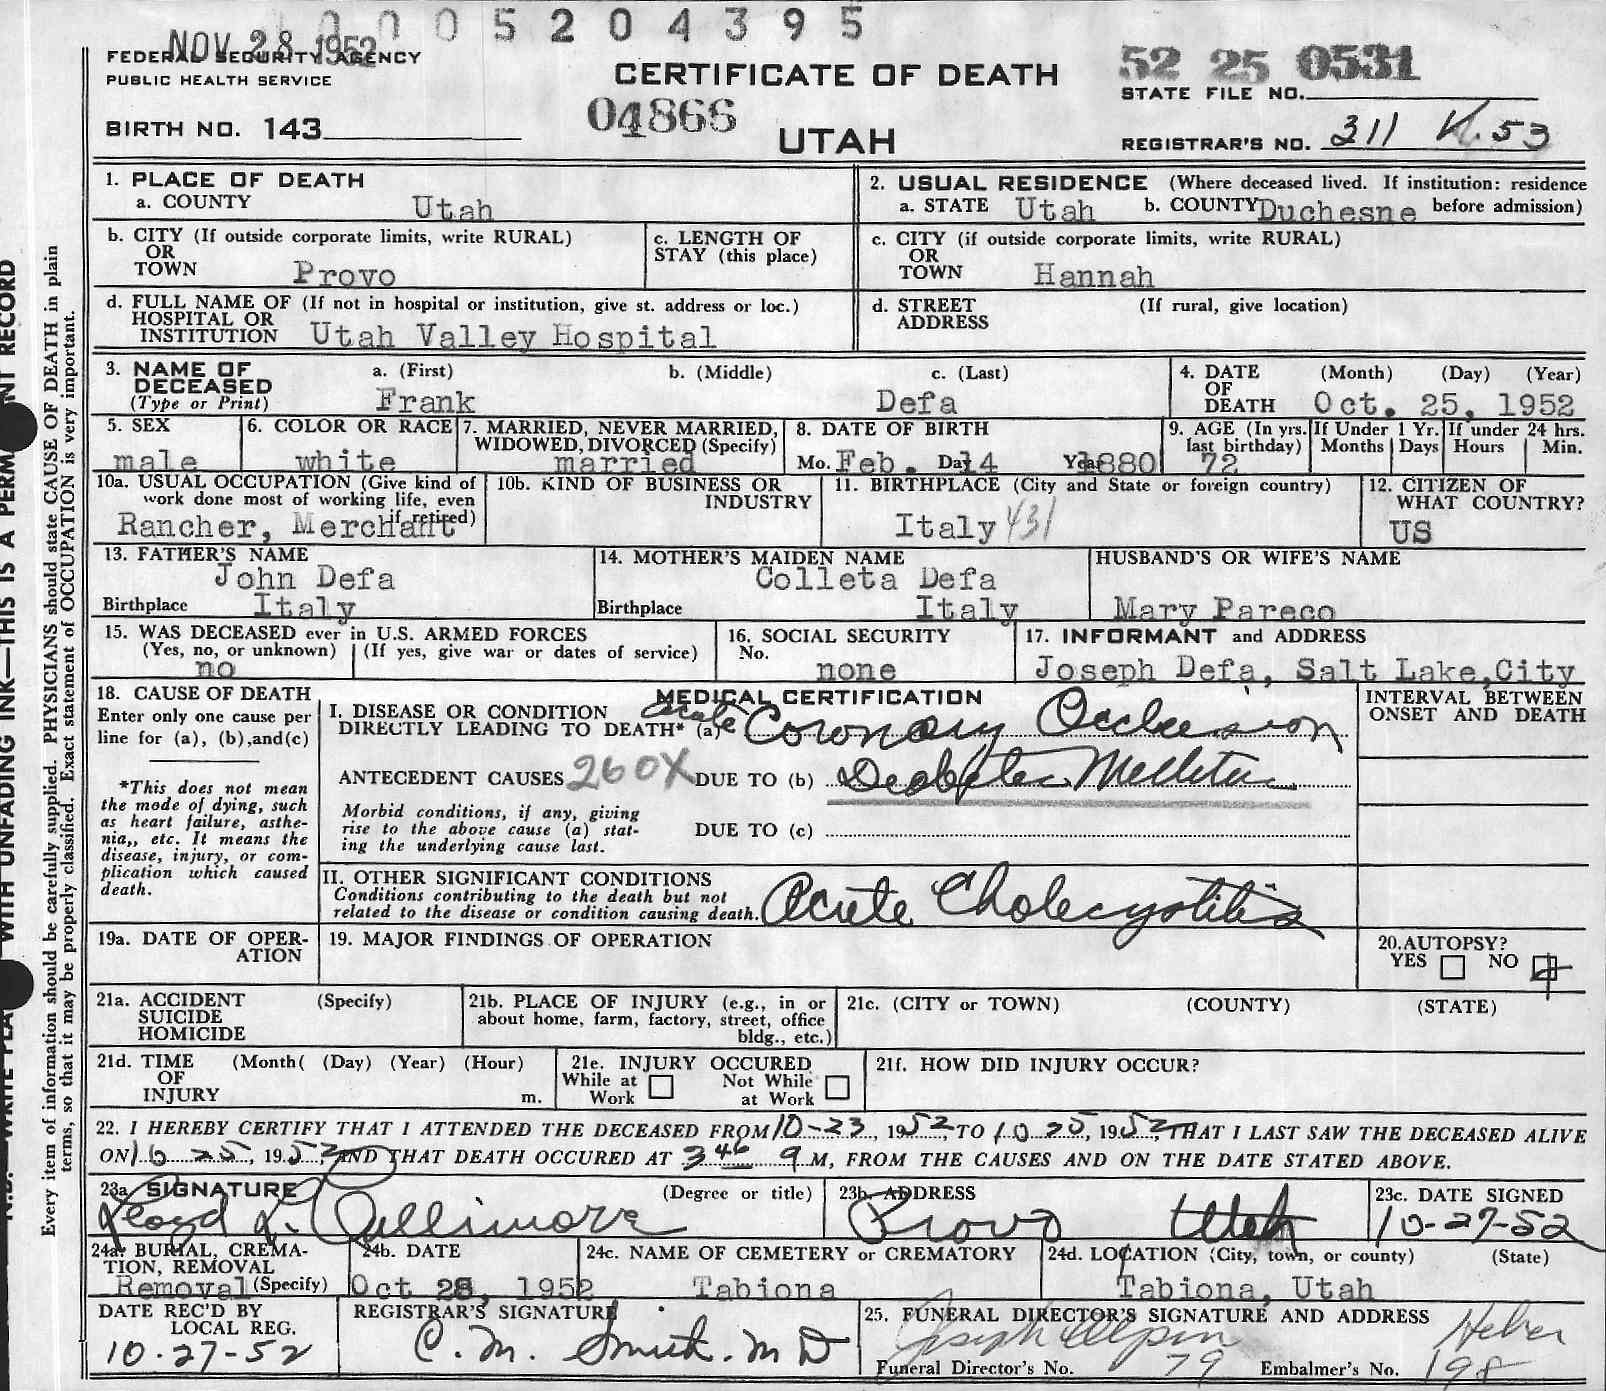 0005204395
NOV 28 1952
FEDERAL SECURITY AGENCY
PUBLIC HEALTH SERVICE
CERTIFICATE OF DEATH
52 25 0531
STATE FILE NO.
BIRTH NO. 143
04866
UTAH
REGISTRAR'S NO. 311 K.53
1. PLACE OF DEATH
a. COUNTY Utah
2. USUAL RESIDENCE (Where deceased lived. If institution: residence
a. STATE Utah b. COUNTY Duchesne before admission)
b. CITY (If outside corporate limits, write RURAL)
OR
TOWN Provo
c. LENGTH OF
STAY (this place)
c. CITY (if outside corporate limits, write RURAL)
OR
TOWN Hannah
d. FULL NAME OF (If not in hospital or institution, give st. address or loc.)
HOSPITAL OR
INSTITUTION Utah Valley Hospital
d. STREET (If rural, give location)
ADDRESS
3. NAME OF a. (First) b. (Middle) c. (Last)
DECEASED
(Type or Print) Frank Defa
4. DATE (Month) (Day) (Year)
OF
DEATH Oct. 25, 1952
5. SEX
male
6. COLOR OR RACE
white
7. MARRIED, NEVER MARRIED,
WIDOWED, DIVORCED (Specify)
married
8. DATE OF BIRTH
Mo. Feb. Day 14 Year 1880
9. AGE (In yrs.
last birthday)
72
If Under 1 Yr.
Months Days
If under 24 hrs.
Hours Min.
10a. USUAL OCCUPATION (Give kind of
work done most of working life, even
if retired)
Rancher, Merchant
10b. KIND OF BUSINESS OR
INDUSTRY
11. BIRTHPLACE (City and State or foreign country)
Italy 431
12. CITIZEN OF
WHAT COUNTRY?
US
13. FATHER'S NAME
John Defa
Birthplace Italy
14. MOTHER'S MAIDEN NAME
Colleta Defa
Birthplace Italy
HUSBAND'S OR WIFE'S NAME
Mary Pareco
15. WAS DECEASED ever in U.S. ARMED FORCES
(Yes, no, or unknown) (If yes, give war or dates of service)
no
16. SOCIAL SECURITY
No.
none
17. INFORMANT and ADDRESS
Joseph Defa, Salt Lake, City
18. CAUSE OF DEATH
Enter only one cause per
line for (a), (b), and (c)
*This does not mean
the mode of dying, such
as heart failure, asthe-
nia,, etc. It means the
disease, injury, or com-
plication which caused
death.
MEDICAL CERTIFICATION
I. DISEASE OR CONDITION
DIRECTLY LEADING TO DEATH* (a) Acute Coronary Occlusion
ANTECEDENT CAUSES 260X DUE TO (b) Diabetes Mellitus
Morbid conditions, if any, giving
rise to the above cause (a) stat-
ing the underlying cause last.
DUE TO (c)
INTERVAL BETWEEN
ONSET AND DEATH
II. OTHER SIGNIFICANT CONDITIONS
Conditions contributing to the death but not
related to the disease or condition causing death. Acute Cholecystitis
19a. DATE OF OPER-
ATION
19. MAJOR FINDINGS OF OPERATION
20. AUTOPSY?
YES NO
21a. ACCIDENT (Specify)
SUICIDE
HOMICIDE
21b. PLACE OF INJURY (e.g., in or
about home, farm, factory, street, office
bldg., etc.)
21c. (CITY or TOWN) (COUNTY) (STATE)
21d. TIME (Month( (Day) (Year) (Hour)
OF
INJURY m.
21e. INJURY OCCURED
While at Work Not While at Work
21f. HOW DID INJURY OCCUR?
22. I HEREBY CERTIFY THAT I ATTENDED THE DECEASED FROM 10-23, 1952, TO 10 25, 1952, THAT I LAST SAW THE DECEASED ALIVE
ON 10 25, 1952, AND THAT DEATH OCCURED AT 3 46 M, FROM THE CAUSES AND ON THE DATE STATED ABOVE.
23a. SIGNATURE (Degree or title)
Lloyd L. Cullimore
23b. ADDRESS
Provo Utah
23c. DATE SIGNED
10-27-52
24a. BURIAL, CREMA-
TION, REMOVAL
Removal (Specify)
24b. DATE
Oct 28, 1952
24c. NAME OF CEMETERY or CREMATORY
Tabiona
24d. LOCATION (City, town, or county) (State)
Tabiona, Utah
DATE REC'D BY
LOCAL REG.
10-27-52
REGISTRAR'S SIGNATURE
C. M. Smith. M D
25. FUNERAL DIRECTOR'S SIGNATURE AND ADDRESS
Joseph Heber
Funeral Director's No. 79 Embalmer's No. 198
Every item of information should be carefully supplied. PHYSICIANS should state CAUSE OF DEATH in plain
terms, so that it may be properly classified. Exact statement of OCCUPATION is very important.
WITH UNFADING INK—THIS IS A PERM NT RECORD